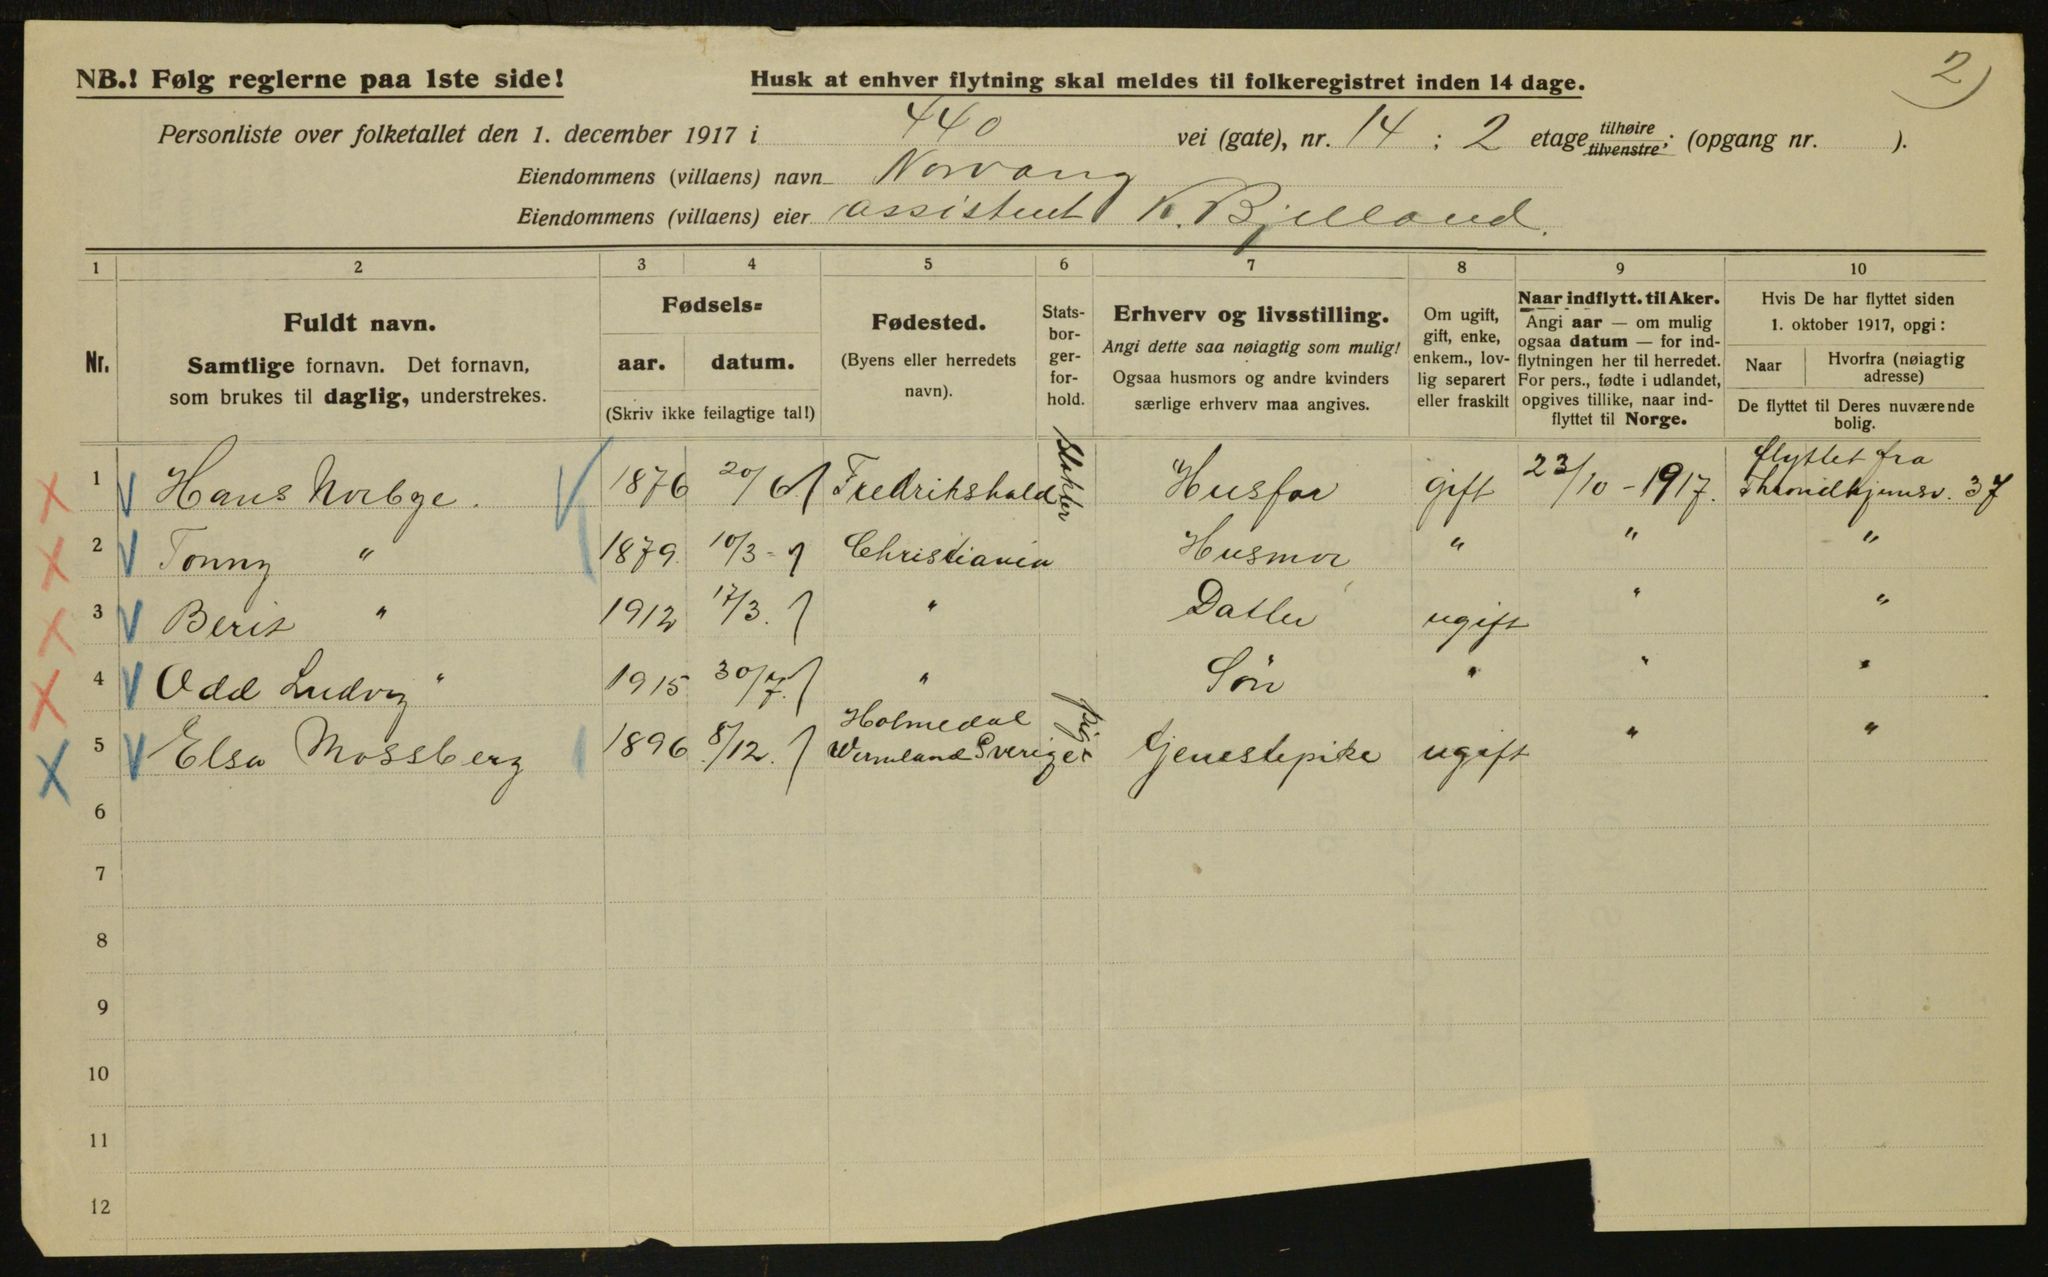 2)
NB.! Følg reglerne paa 1ste side!
Husk at enhver flytning skal meldes til folkeregistret inden 14 dage.
Personliste over folketallet den 1. december 1917 i 440 vei (gate), nr. 14 ; 2 etage tilhøire tilvenstre; (opgang nr. ).
Eiendommens (villaens) navn Norvang
Eiendommens (villaens) eier assistent K. Bjelland.
1 2 3 4 5 6 7 8 9 10
Nr.
Fuldt navn.
Samtlige fornavn. Det fornavn,
som brukes til daglig, understrekes.
Fødsels=
aar. datum.
(Skriv ikke feilagtige tal!)
Fødested.
(Byens eller herredets
navn).
Stats-
bor-
ger-
for-
hold.
Erhverv og livsstilling.
Angi dette saa nøiagtig som mulig!
Ogsaa husmors og andre kvinders
særlige erhverv maa angives.
Om ugift,
gift, enke,
enkem., lov-
lig separert
eller fraskilt
Naar indflytt. til Aker.
Angi aar — om mulig
ogsaa datum — for ind-
flytningen her til herredet.
For pers., fødte i udlandet,
opgives tillike, naar ind-
flyttet til Norge.
Hvis De har flyttet siden
1. oktober 1917, opgi:
Naar
Hvorfra (nøiagtig
adresse)
De flyttet til Deres nuværende
bolig.
flyttet fra
1 Hans Norbye. 1876 20/6 Fredrikshald Husfar gift 23/10-1917. Throndhjemsv. 37
2 Tonny " 1879. 10/3 Christiania Husmor " " "
3 Berit " 1912 17/3. " Datter ugift " "
4 Odd Ludvig " 1915 30/7. " Søn " " "
Holmedal
5 Elsa Mossberg 1896 8/12. Wermland Sverige pige Tjenestepike ugift " "
6
7
8
9
10
11
12